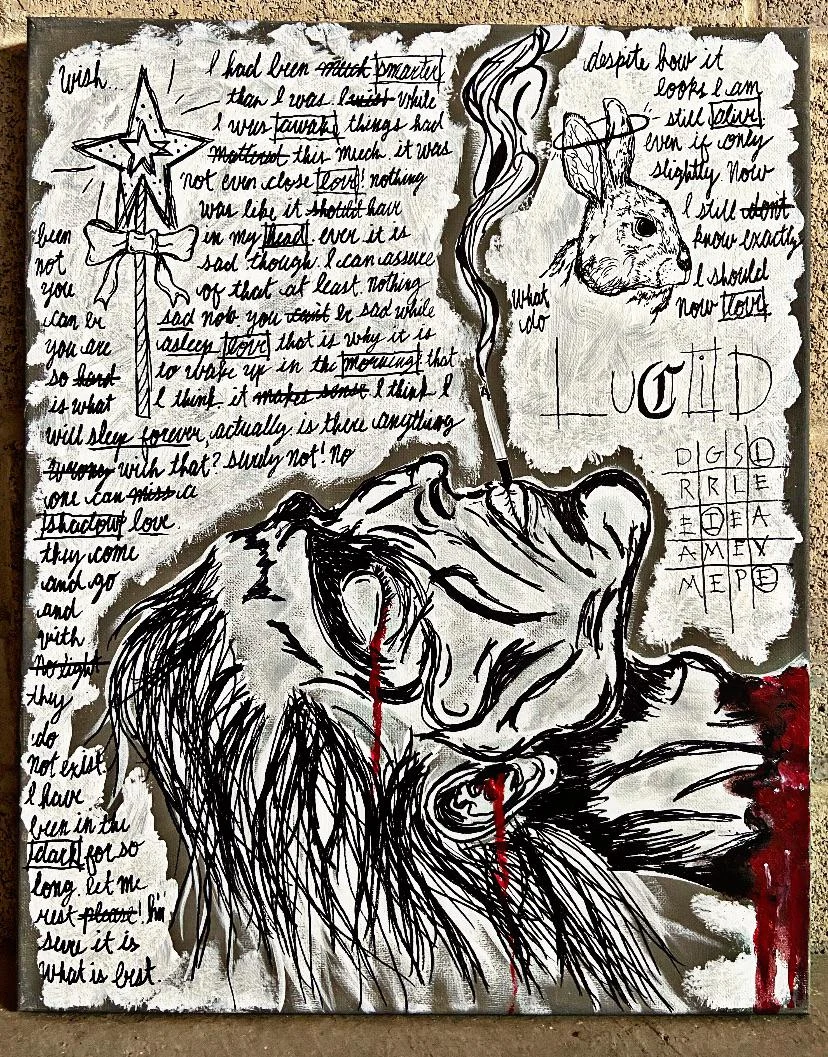 wish...
I had been much smarter
than I was. I wish while
I was awake things had
mattered this much. it was
not even close love! nothing
was like it should have
been in my head. ever it is
not sad though. I can assure
you of that at least. nothing
can be sad now you can't be sad while
you are asleep love that is why it is
so hard to wake up in the morning that
is what I think. it makes sense I think I
will sleep forever, actually is there anything
wrong with that? surely not! no
one can miss a
shadow love.
they come
and go
and
with
no light
they
do
not exist.
I have
been in the
dark for so
long. let me
rest please! I'm
sure it is
what is best.
despite how it
looks I am
still alive.
even if only
slightly now
I still don't
know exactly
what I should
do now love.
LUCIID
D G S L
R R L E
E I E A
A M E X
M E P E